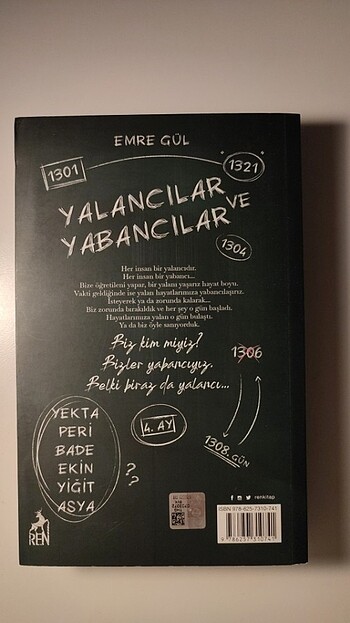 EMRE GÜL
1301
1321
YALANCILAR VE
YABANCILAR
1304
Her insan bir yalancıdır.
Her insan bir yabancı...
Bize öğretileni yapar, bir yalanı yaşarız hayat boyu.
Vakti geldiğinde ise yalan hayatlarımıza yabancılaşırız.
İsteyerek ya da zorunda kalarak...
Biz zorunda bırakıldık ve her şey o gün başladı.
Hayatlarımıza yalan o gün bulaştı.
Ya da biz öyle sanıyorduk.
Biz kim miyiz?
Bizler yabancıyız.
Belki biraz da yalancı...
1306
YEKTA
PERİ
BADE
EKİN
YİĞİT
ASYA
??
4. AY
1308. GÜN
REN
renkitap
ISBN 978-625-7310-741
9 786257 310741